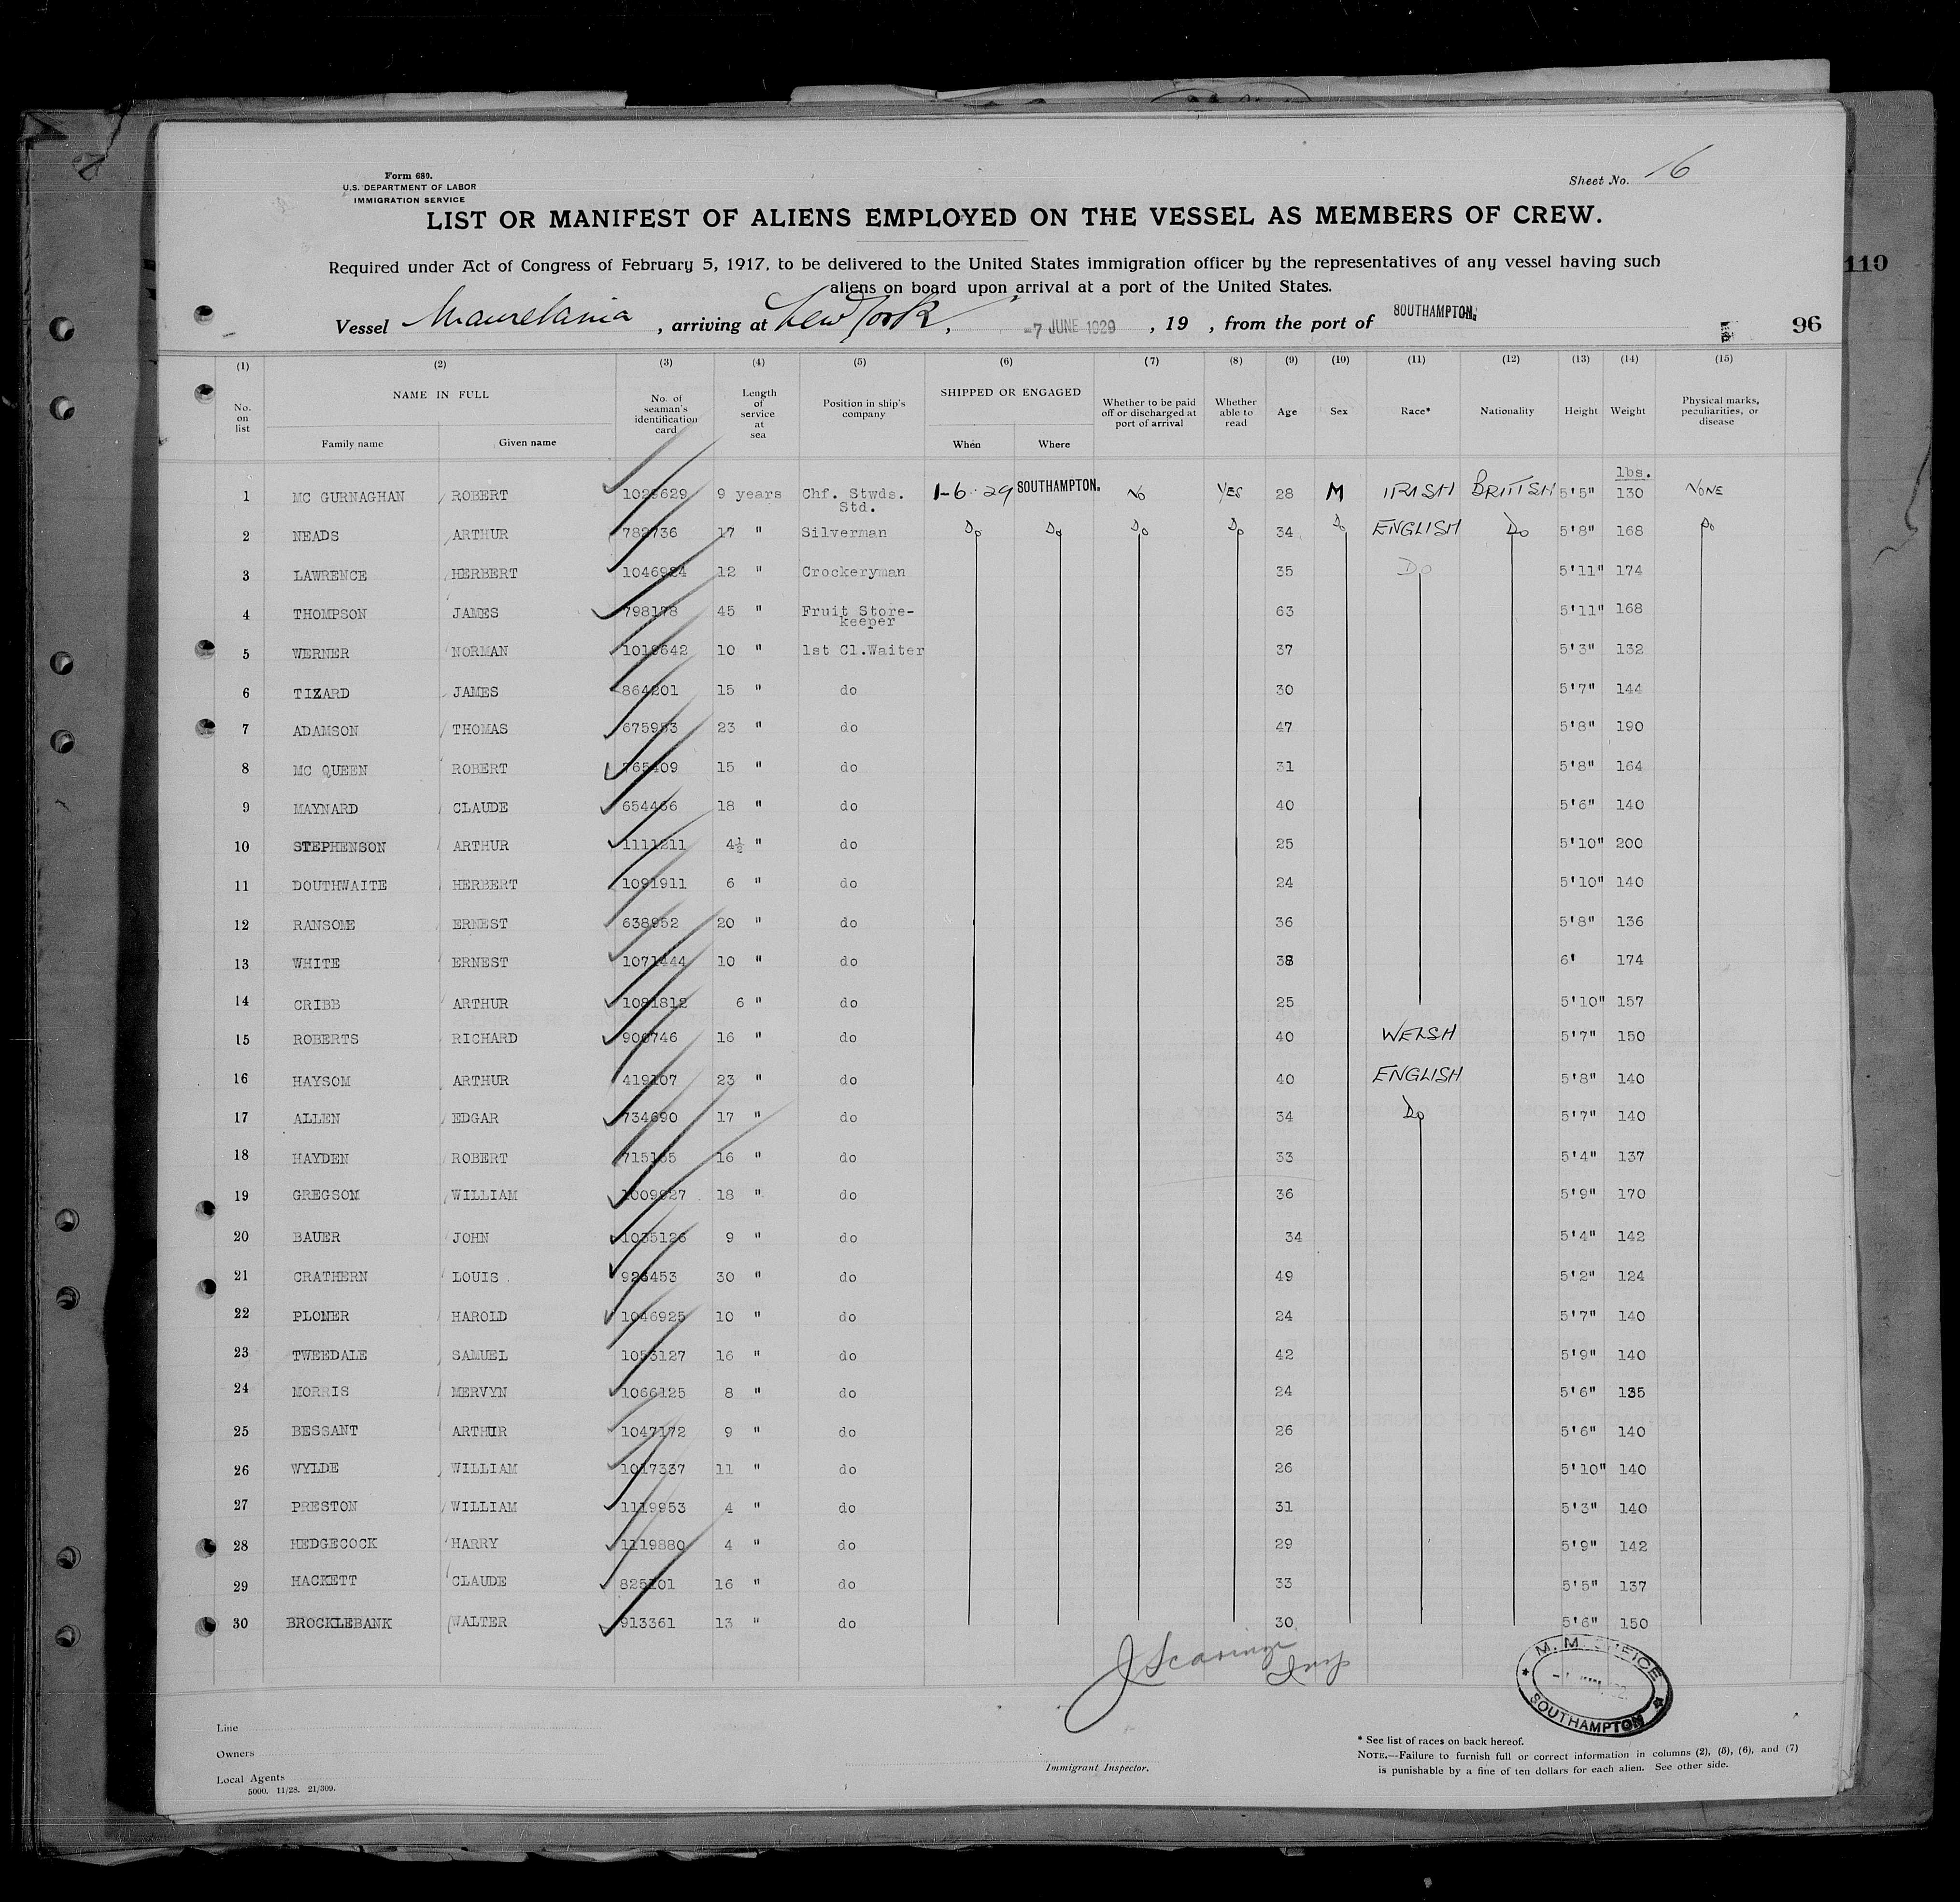 Form 680.
U.S. DEPARTMENT OF LABOR
IMMIGRATION SERVICE
Sheet No. 16
LIST OR MANIFEST OF ALIENS EMPLOYED ON THE VESSEL AS MEMBERS OF CREW.
Required under Act of Congress of February 5, 1917, to be delivered to the United States immigration officer by the representatives of any vessel having such
aliens on board upon arrival at a port of the United States.
110
Vessel Mauretania, arriving at New York, -7 JUNE 1929, 19 , from the port of SOUTHAMPTON. 96
(1) (2) (3) (4) (5) (6) (7) (8) (9) (10) (11) (12) (13) (14) (15)
No. on list NAME IN FULL Family name Given name No. of seaman's identification card Length of service at sea Position in ship's company SHIPPED OR ENGAGED When Where Whether to be paid off or discharged at port of arrival Whether able to read Age Sex Race* Nationality Height Weight Physical marks, peculiarities, or disease
lbs.
1 MC GURNAGHAN ROBERT 9 years Chf. Stwds. Std. 1-6-29 SOUTHAMPTON. No YES 28 M IRISH BRITISH 5'5" 130 NONE
2 NEADS ARTHUR 17 " Silverman Do Do Do Do 34 Do ENGLISH Do 5'8" 168 Do
3 LAWRENCE HERBERT 12 " Crockeryman 35 Do 5'11" 174
4 THOMPSON JAMES 798178 45 " Fruit Store-keeper 63 5'11" 168
5 WERNER NORMAN 10 " 1st Cl.Waiter 37 5'3" 132
6 TIZARD JAMES 864201 15 " do 30 5'7" 144
7 ADAMSON THOMAS 675953 23 " do 47 5'8" 190
8 MC QUEEN ROBERT 765409 15 " do 31 5'8" 164
9 MAYNARD CLAUDE 654466 18 " do 40 5'6" 140
10 STEPHENSON ARTHUR 1111211 4½ " do 25 5'10" 200
11 DOUTHWAITE HERBERT 1091911 6 " do 24 5'10" 140
12 RANSOME ERNEST 638952 20 " do 36 5'8" 136
13 WHITE ERNEST 1071444 10 " do 38 6' 174
14 CRIBB ARTHUR 1081812 6 " do 25 5'10" 157
15 ROBERTS RICHARD 900746 16 " do 40 WELSH 5'7" 150
16 HAYSOM ARTHUR 419107 23 " do 40 ENGLISH 5'8" 140
17 ALLEN EDGAR 734690 17 " do 34 Do 5'7" 140
18 HAYDEN ROBERT 16 " do 33 5'4" 137
19 GREGSON WILLIAM 18 " do 36 5'9" 170
20 BAUER JOHN 1035126 9 " do 34 5'4" 142
21 CRATHERN LOUIS 30 " do 49 5'2" 124
22 PLOMER HAROLD 1046925 10 " do 24 5'7" 140
23 TWEEDALE SAMUEL 16 " do 42 5'9" 140
24 MORRIS MERVYN 1066125 8 " do 24 5'6" 135
25 BESSANT ARTHUR 1047172 9 " do 26 5'6" 140
26 WYLDE WILLIAM 1017337 11 " do 26 5'10" 140
27 PRESTON WILLIAM 1119953 4 " do 31 5'3" 140
28 HEDGECOCK HARRY 1119880 4 " do 29 5'9" 142
29 HACKETT CLAUDE 16 " do 33 5'5" 137
30 BROCKLEBANK WALTER 913361 13 " do 30 5'6" 150
Insp
M. M. OFFICE
SOUTHAMPTON
Line
Owners
Local Agents
5000. 11/28. 21/309.
Immigrant Inspector.
* See list of races on back hereof.
NOTE.—Failure to furnish full or correct information in columns (2), (5), (6), and (7)
is punishable by a fine of ten dollars for each alien. See other side.